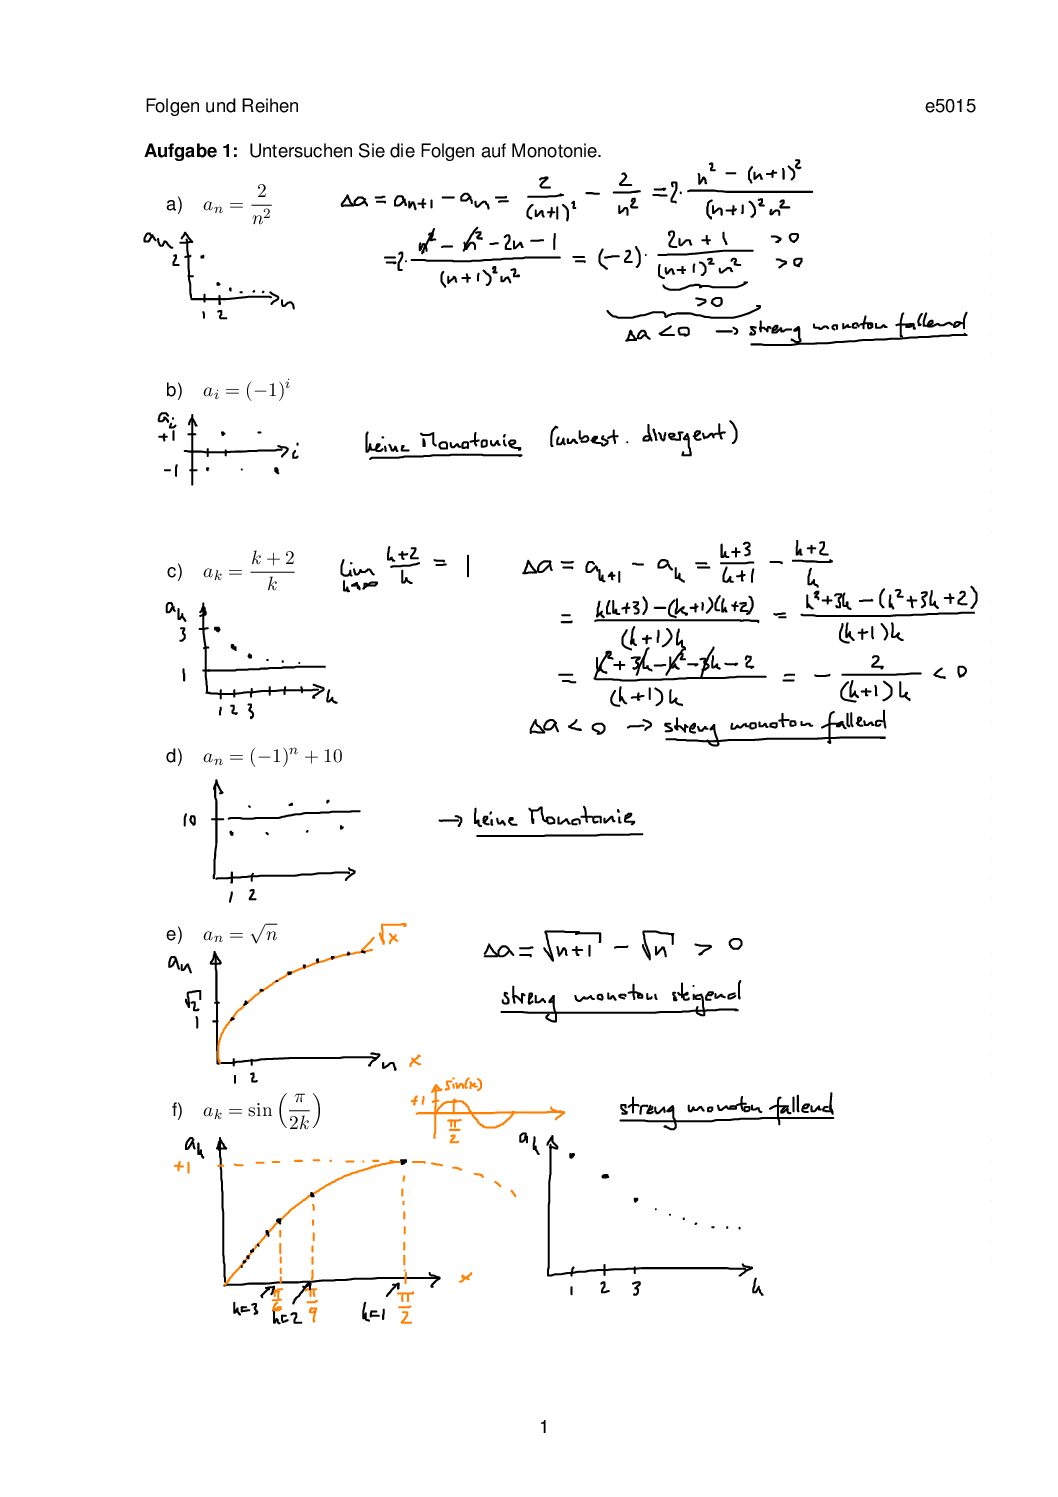 Folgen und Reihen e5015
Aufgabe 1: Untersuchen Sie die Folgen auf Monotonie.
a) a_n = 2/n²
Δa = a_{n+1} - a_n = 2/(n+1)² - 2/n² = 2· (n² - (n+1)²)/((n+1)² n²)
= 2· (n² - n² - 2n - 1)/((n+1)² n²) = (-2)· (2n + 1)/((n+1)² n²) >0 >0
>0
Δa < 0 → streng monoton fallend
a_n
2
1 2 n
b) a_i = (-1)^i
a_i
+1
-1
i
keine Monotonie (unbest. divergent)
c) a_k = (k + 2)/k
lim k→∞ (k+2)/k = 1
Δa = a_{k+1} - a_k = (k+3)/(k+1) - (k+2)/k
= (k(k+3) - (k+1)(k+2))/((k+1)k) = (k²+3k - (k²+3k+2))/((k+1)k)
= (k² + 3k - k² - 3k - 2)/((k+1)k) = - 2/((k+1)k) < 0
Δa < 0 → streng monoton fallend
a_k
3
1
1 2 3 k
d) a_n = (-1)^n + 10
10
1 2
→ keine Monotonie
e) a_n = √n
√x
a_n
√2
1
1 2 n x
Δa = √(n+1) - √n > 0
streng monoton steigend
f) a_k = sin(π/(2k))
sin(x)
+1
π/2
streng monoton fallend
a_k
+1
x
k=3 π/6 k=2 π/4 k=1 π/2
a_k
1 2 3 k
1